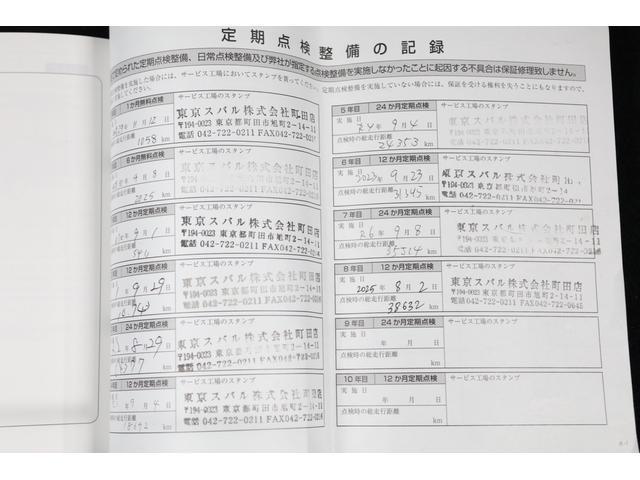 定期点検整備の記録
められた定期点検整備、日常点検整備及び弊社が指定する点検整備を実施しなかったことに起因する不具合は保証修理致しません。
備を実施した場合には、サービス工場においてスタンプを貰ってください。
定期点検整備を実施していない場合には、保証を受ける権利を失うこともありますので、
1か月無料点検
サービス工場のスタンプ
11月12日
1058 km
東京スバル株式会社町田店
〒194-0023 東京都町田市旭町2-14-11
電話 042-722-0211 FAX042-722-0645
6か月無料点検
サービス工場のスタンプ
4月8日
2025 km
東京スバル株式会社町田店
〒194-0023 東京都町田市旭町2-14-11
電話 042-722-0211 FAX042-722-0645
12か月定期点検
サービス工場のスタンプ
9月1日
km
東京スバル株式会社町田店
〒194-0023 東京都町田市旭町2-14-11
電話 042-722-0211 FAX042-722-0645
12か月定期点検
サービス工場のスタンプ
9月29日
km
東京スバル株式会社町田店
〒194-0023 東京都町田市旭町2-14-11
電話 042-722-0211 FAX042-722-0645
24か月定期点検
サービス工場のスタンプ
8月29日
km
東京スバル株式会社町田店
〒194-0023 東京都町田市旭町2-14-11
電話 042-722-0211 FAX042-722-0645
12か月定期点検
サービス工場のスタンプ
9月4日
km
東京スバル株式会社町田店
〒194-0023 東京都町田市旭町2-14-11
電話 042-722-0211 FAX042-722-0645
5年目 24か月定期点検
サービス工場のスタンプ
実施日
年9月4日
点検時の総走行距離
24353 km
東京スバル株式会社町田店
〒194-0023 東京都町田市旭町2-14-11
電話 042-722-0211 FAX042-722-0645
6年目 12か月定期点検
サービス工場のスタンプ
実施日
2023年9月23日
点検時の総走行距離
31345 km
東京スバル株式会社町田
〒194-0023 東京都町田市旭町2-14-11
電話 042-722-0211 FAX042-722
7年目 24か月定期点検
サービス工場のスタンプ
実施日
26年9月8日
点検時の総走行距離
35514 km
東京スバル株式会社町田店
〒194-0023 東京都町田市旭町2-14-11
電話 042-722-0211 FAX042-722-0645
8年目 12か月定期点検
サービス工場のスタンプ
実施日
2025年8月2日
点検時の総走行距離
38632 km
東京スバル株式会社町田店
〒194-0023 東京都町田市旭町2-14-11
電話 042-722-0211 FAX042-722-0645
9年目 24か月定期点検
サービス工場のスタンプ
実施日
年 月 日
点検時の総走行距離
km
10年目 12か月定期点検
サービス工場のスタンプ
実施日
年 月 日
点検時の総走行距離
km